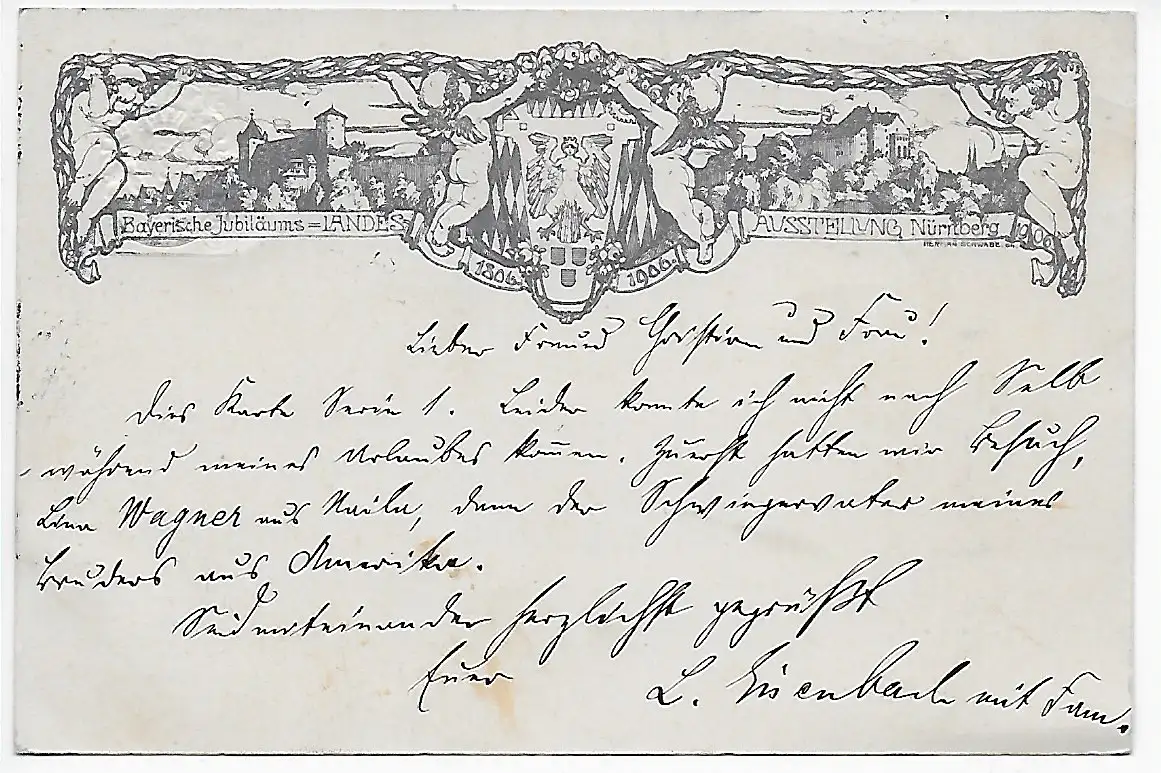 Bayerische Jubiläums=LANDES
AUSSTELLUNG Nürnberg 1906
HERMAN SCHWABE
1806
1906
Lieber Freund Christian und Frau!
Dies Karte Serie 1. Leider konnte ich nicht nach Selb
während meines Urlaubes kommen. Zuerst hatten wir Besuch,
Lina Wagner aus Naila, dann der Schwiegervater meines
Bruders aus Amerika.
Seid miteinander herzlichst gegrüßt
Euer
L. Eisenbach mit Fam.